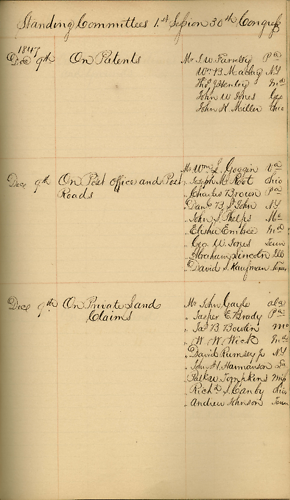 Standing Committees 1st Session 30th Congress
1847
Dec 9th On Patents Mr
Wm B Maclay NY
John W Jones Geo
John K Miller Ohio
Dec 9th On Post office and Post Roads Mr Wm L Goggin Va
" Joseph M Root Ohio
" Charles Brown Pa
" Danl B St John NY
" John S Phelps Mo
" Elisha Embree Inda
" Geo W Jones Tenn
" Abraham Lincoln Ills
" David S Kaufman Texas
Dec 9th On Private Land Claims Mr John Gayle Ala
" Jasper E Brady Pa
" Jas B Bowlin Mo
" W. W. Wick Inda
" David Rumsey Jr NY
" John H Harmanson La
" Patk W Tompkins Miss
" Richd S Canby Ohio
" Andrew Johnson Tenn